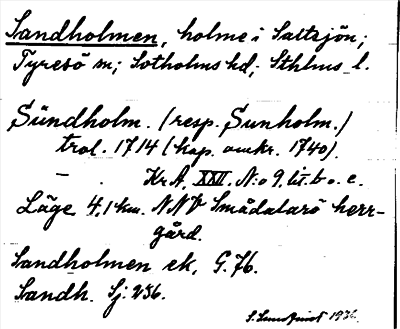 Sandholmen, holme i Saltsjön;
Tyresö sn; Sotholms hd; Sthlms l.
Sündholm. (resp. Sunholm.)
trol. 1714 (kop. omkr. 1740).
— . Kr. A. XXII. N:o 9. lit. b o. c.
Läge 4,1 km. NNV Smådalarö herr-
gård.
Sandholmen ek. G. 76.
Sandh. Sj. 236.
S. Lundqvist 1936.